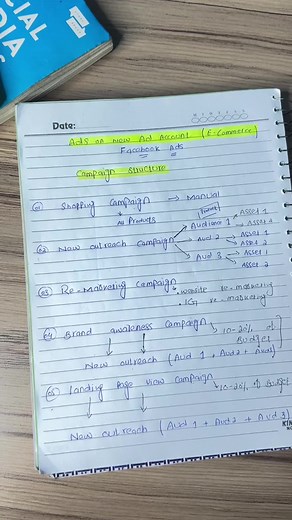 CIAL
DIA
Date:
Ads on New Ad Account (E-Commerce)
Facebook Ads
Campaign Structure
01 Shopping Campaign → Manual
All Products
02 New outreach Campaign Audience 1 Asset 1
Asset 2
Aud 2 Asset 1
Asset 2
Aud 3 Asset 1
Asset 2
03 Re-Marketing Campaign website re-marketing
IG re-marketing
04 Brand awareness Campaign 10-20% of
Budget
New outreach (Aud 1 + Aud 2 + Aud 3)
05 Landing Page View Campaign 10-20% of Budget
New outreach (Aud 1 + Aud 2 + Aud 3)